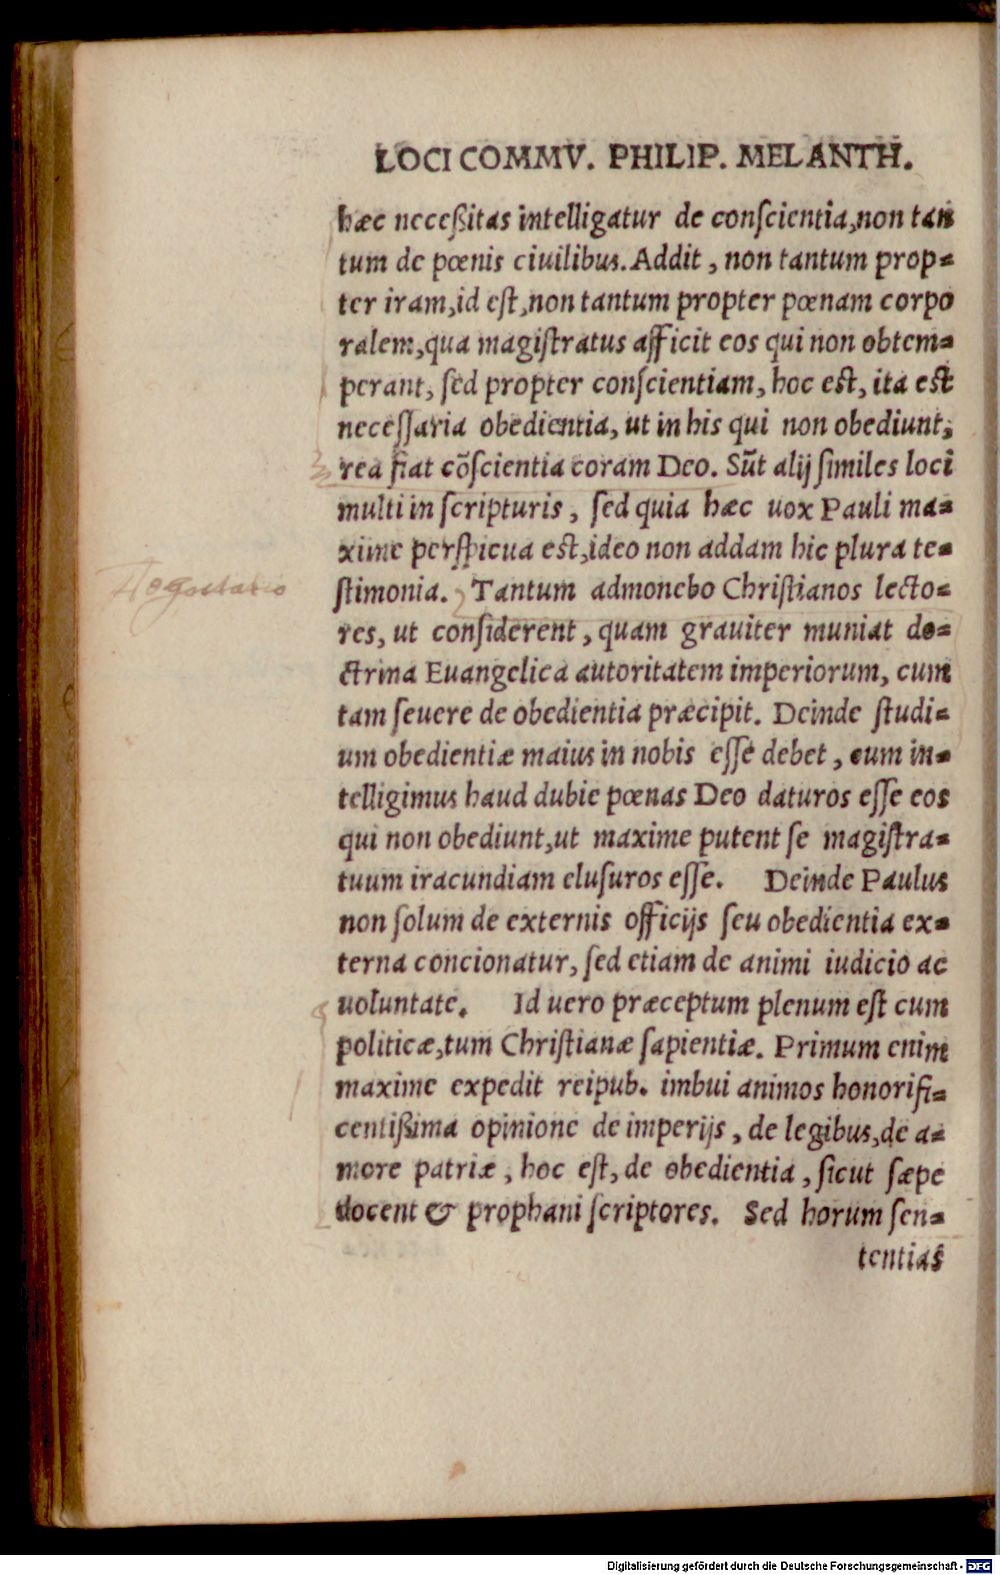 LOCI COMMV. PHILIP. MELANTH.
hæc neceßitas intelligatur de conſcientia, non tan
tum de pœnis ciuilibus. Addit, non tantum prop-
ter iram, id eſt, non tantum propter pœnam corpo
ralem, qua magiſtratus afficit eos qui non obtem-
perant, ſed propter conſcientiam, hoc eſt, ita eſt
neceſſaria obedientia, ut in his qui non obediunt,
rea fiat cõſcientia coram Deo. Sũt alij ſimiles loci
multi in ſcripturis, ſed quia hæc uox Pauli ma-
xime perſpicua eſt, ideo non addam hic plura te-
ſtimonia. Tantum admonebo Chriſtianos lecto-
res, ut conſiderent, quam grauiter muniat do-
ctrina Euangelica autoritatem imperiorum, cum
tam ſeuere de obedientia præcipit. Deinde ſtudi-
um obedientiæ maius in nobis eſſe debet, cum in-
telligimus haud dubie pœnas Deo daturos eſſe eos
qui non obediunt, ut maxime putent ſe magiſtra-
tuum iracundiam eluſuros eſſe. Deinde Paulus
non ſolum de externis officijs ſeu obedientia ex-
terna concionatur, ſed etiam de animi iudicio ac
uoluntate. Id uero præceptum plenum eſt cum
politicæ, tum Chriſtianæ ſapientiæ. Primum enim
maxime expedit reipub. imbui animos honorifi-
centißima opinione de imperijs, de legibus, de a-
more patriæ, hoc eſt, de obedientia, ſicut ſæpe
docent & prophani ſcriptores. Sed horum ſen-
tentias
Digitalisierung gefördert durch die Deutsche Forschungsgemeinschaft - DFG